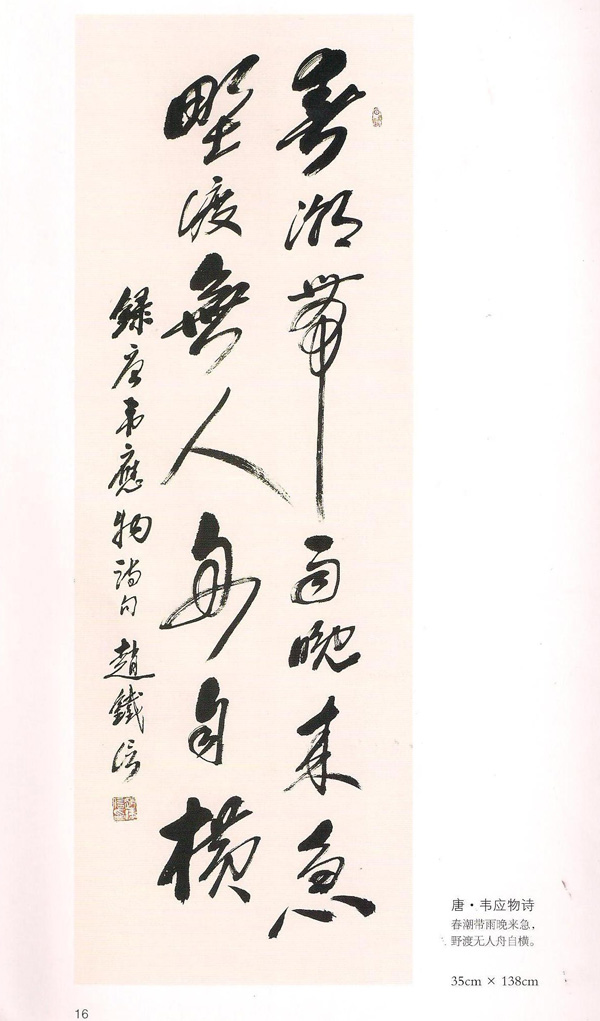 春潮帶雨晚來急
野渡無人舟自橫
錄唐韋應物詩句 趙鐵信
唐·韦应物诗
春潮带雨晚来急，
野渡无人舟自横。
35cm × 138cm
16